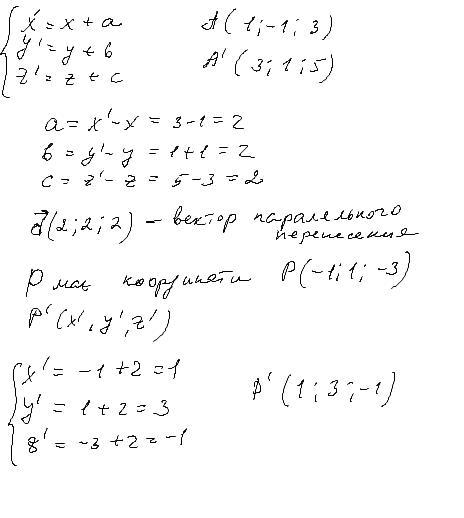 x' = x + a   A(1; -1; 3)
y' = y + b   A'(3; 1; 5)
z' = z + c
a = x' - x = 3 - 1 = 2
b = y' - y = 1 + 1 = 2
c = z' - z = 5 - 3 = 2
(2; 2; 2) – вектор паралельного
перенесення
P має координати P(-1; 1; -3)
P'(x', y', z')
x' = -1 + 2 = 1
y' = 1 + 2 = 3   P'(1; 3; -1)
z' = -3 + 2 = -1